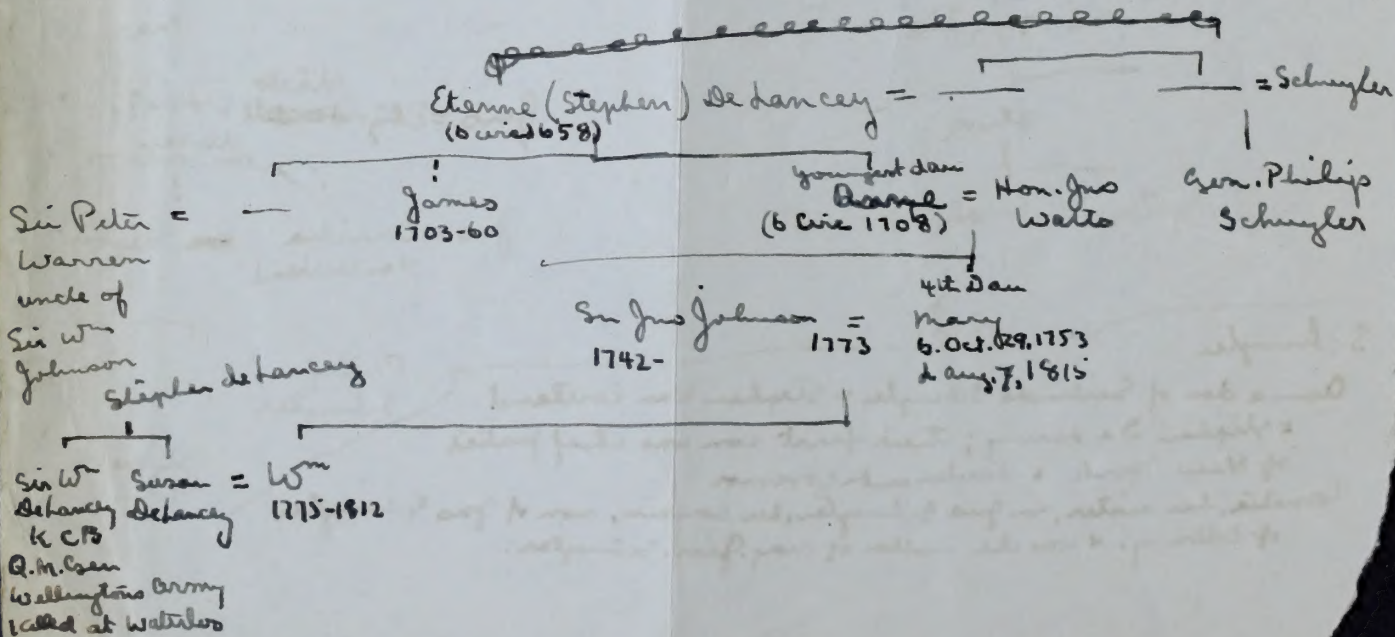 Etienne (Stephen) De Lancey = — — = Schuyler
(b circ 1658)
Sir Peter = —
Warren
uncle of
Sir Wm
Johnson
James
1703-60
youngest dau
= Hon. Jno
(b Circ 1708) Watts
Gen. Philip
Schuyler
Sir Jno Johnson = Mary
1742- 1773
4th Dau
b. Oct. 29, 1753
d Aug. 7, 1815
Stephen de Lancey
Sir Wm
DeLancey
K C B
Q.M. Gen
Wellingtons Army
killed at Waterloo
Susan = Wm
DeLancey 1775-1812